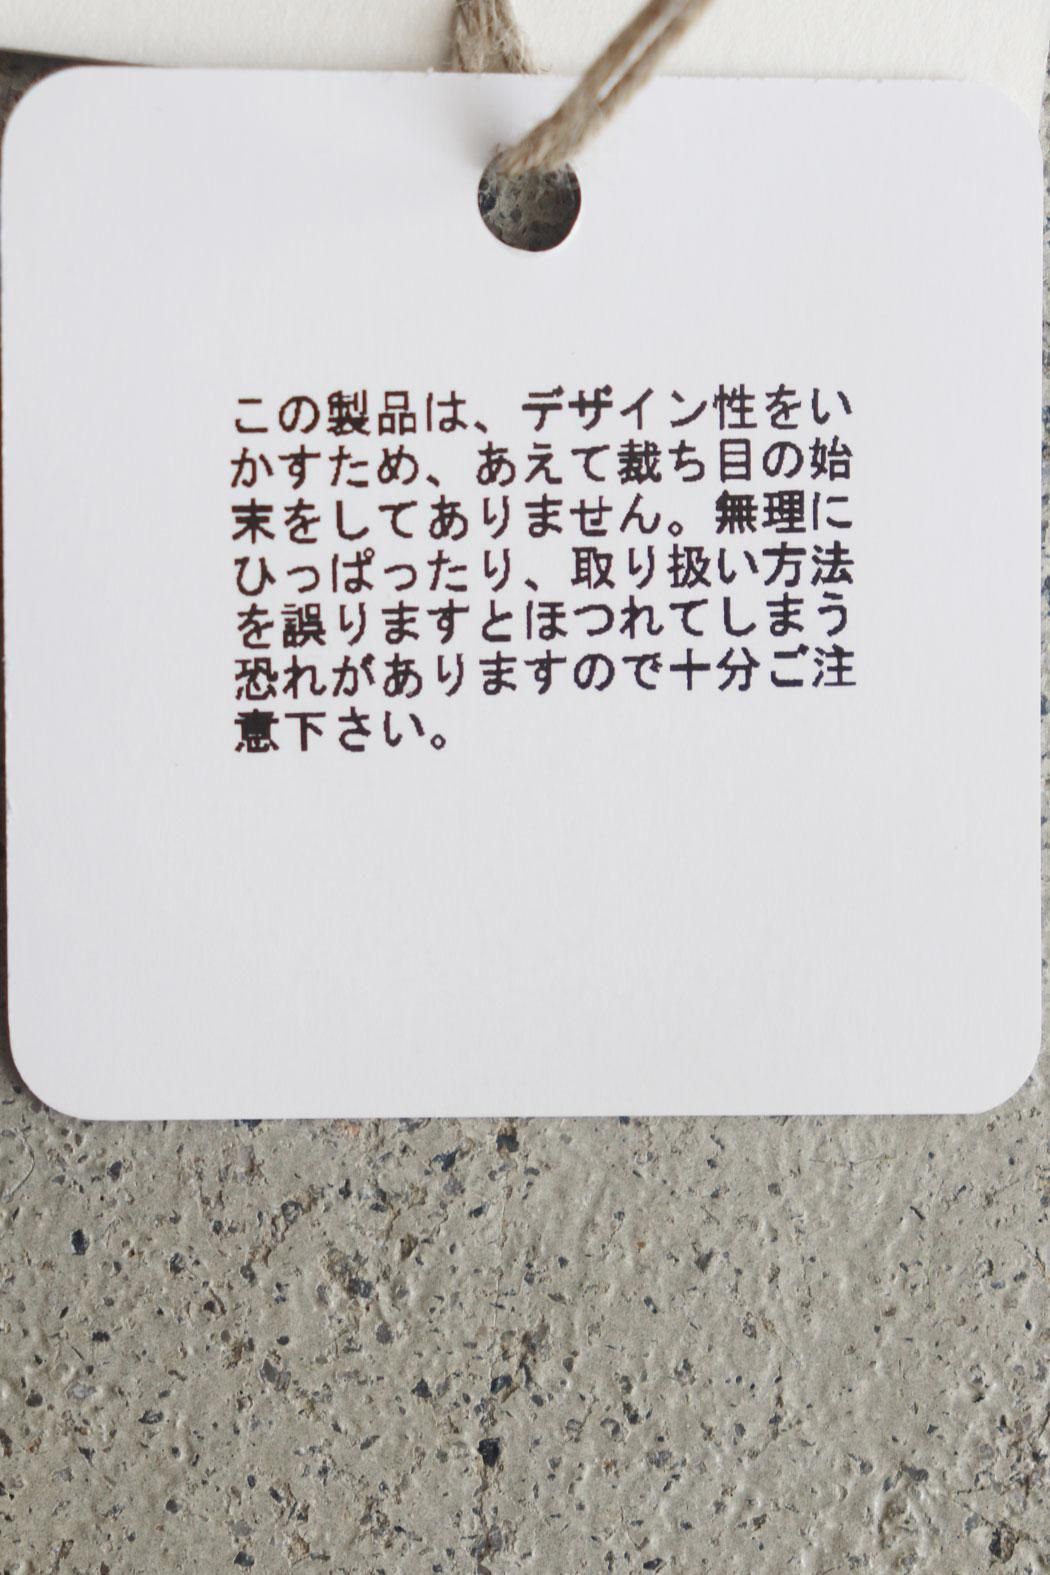 この製品は、デザイン性をい
かすため、あえて裁ち目の始
末をしてありません。無理に
ひっぱったり、取り扱い方法
を誤りますとほつれてしまう
恐れがありますので十分ご注
意下さい。